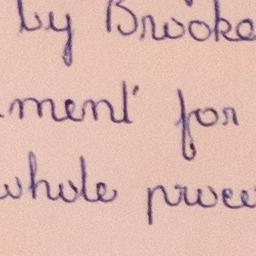 by Brooke
ment' for
whole procee